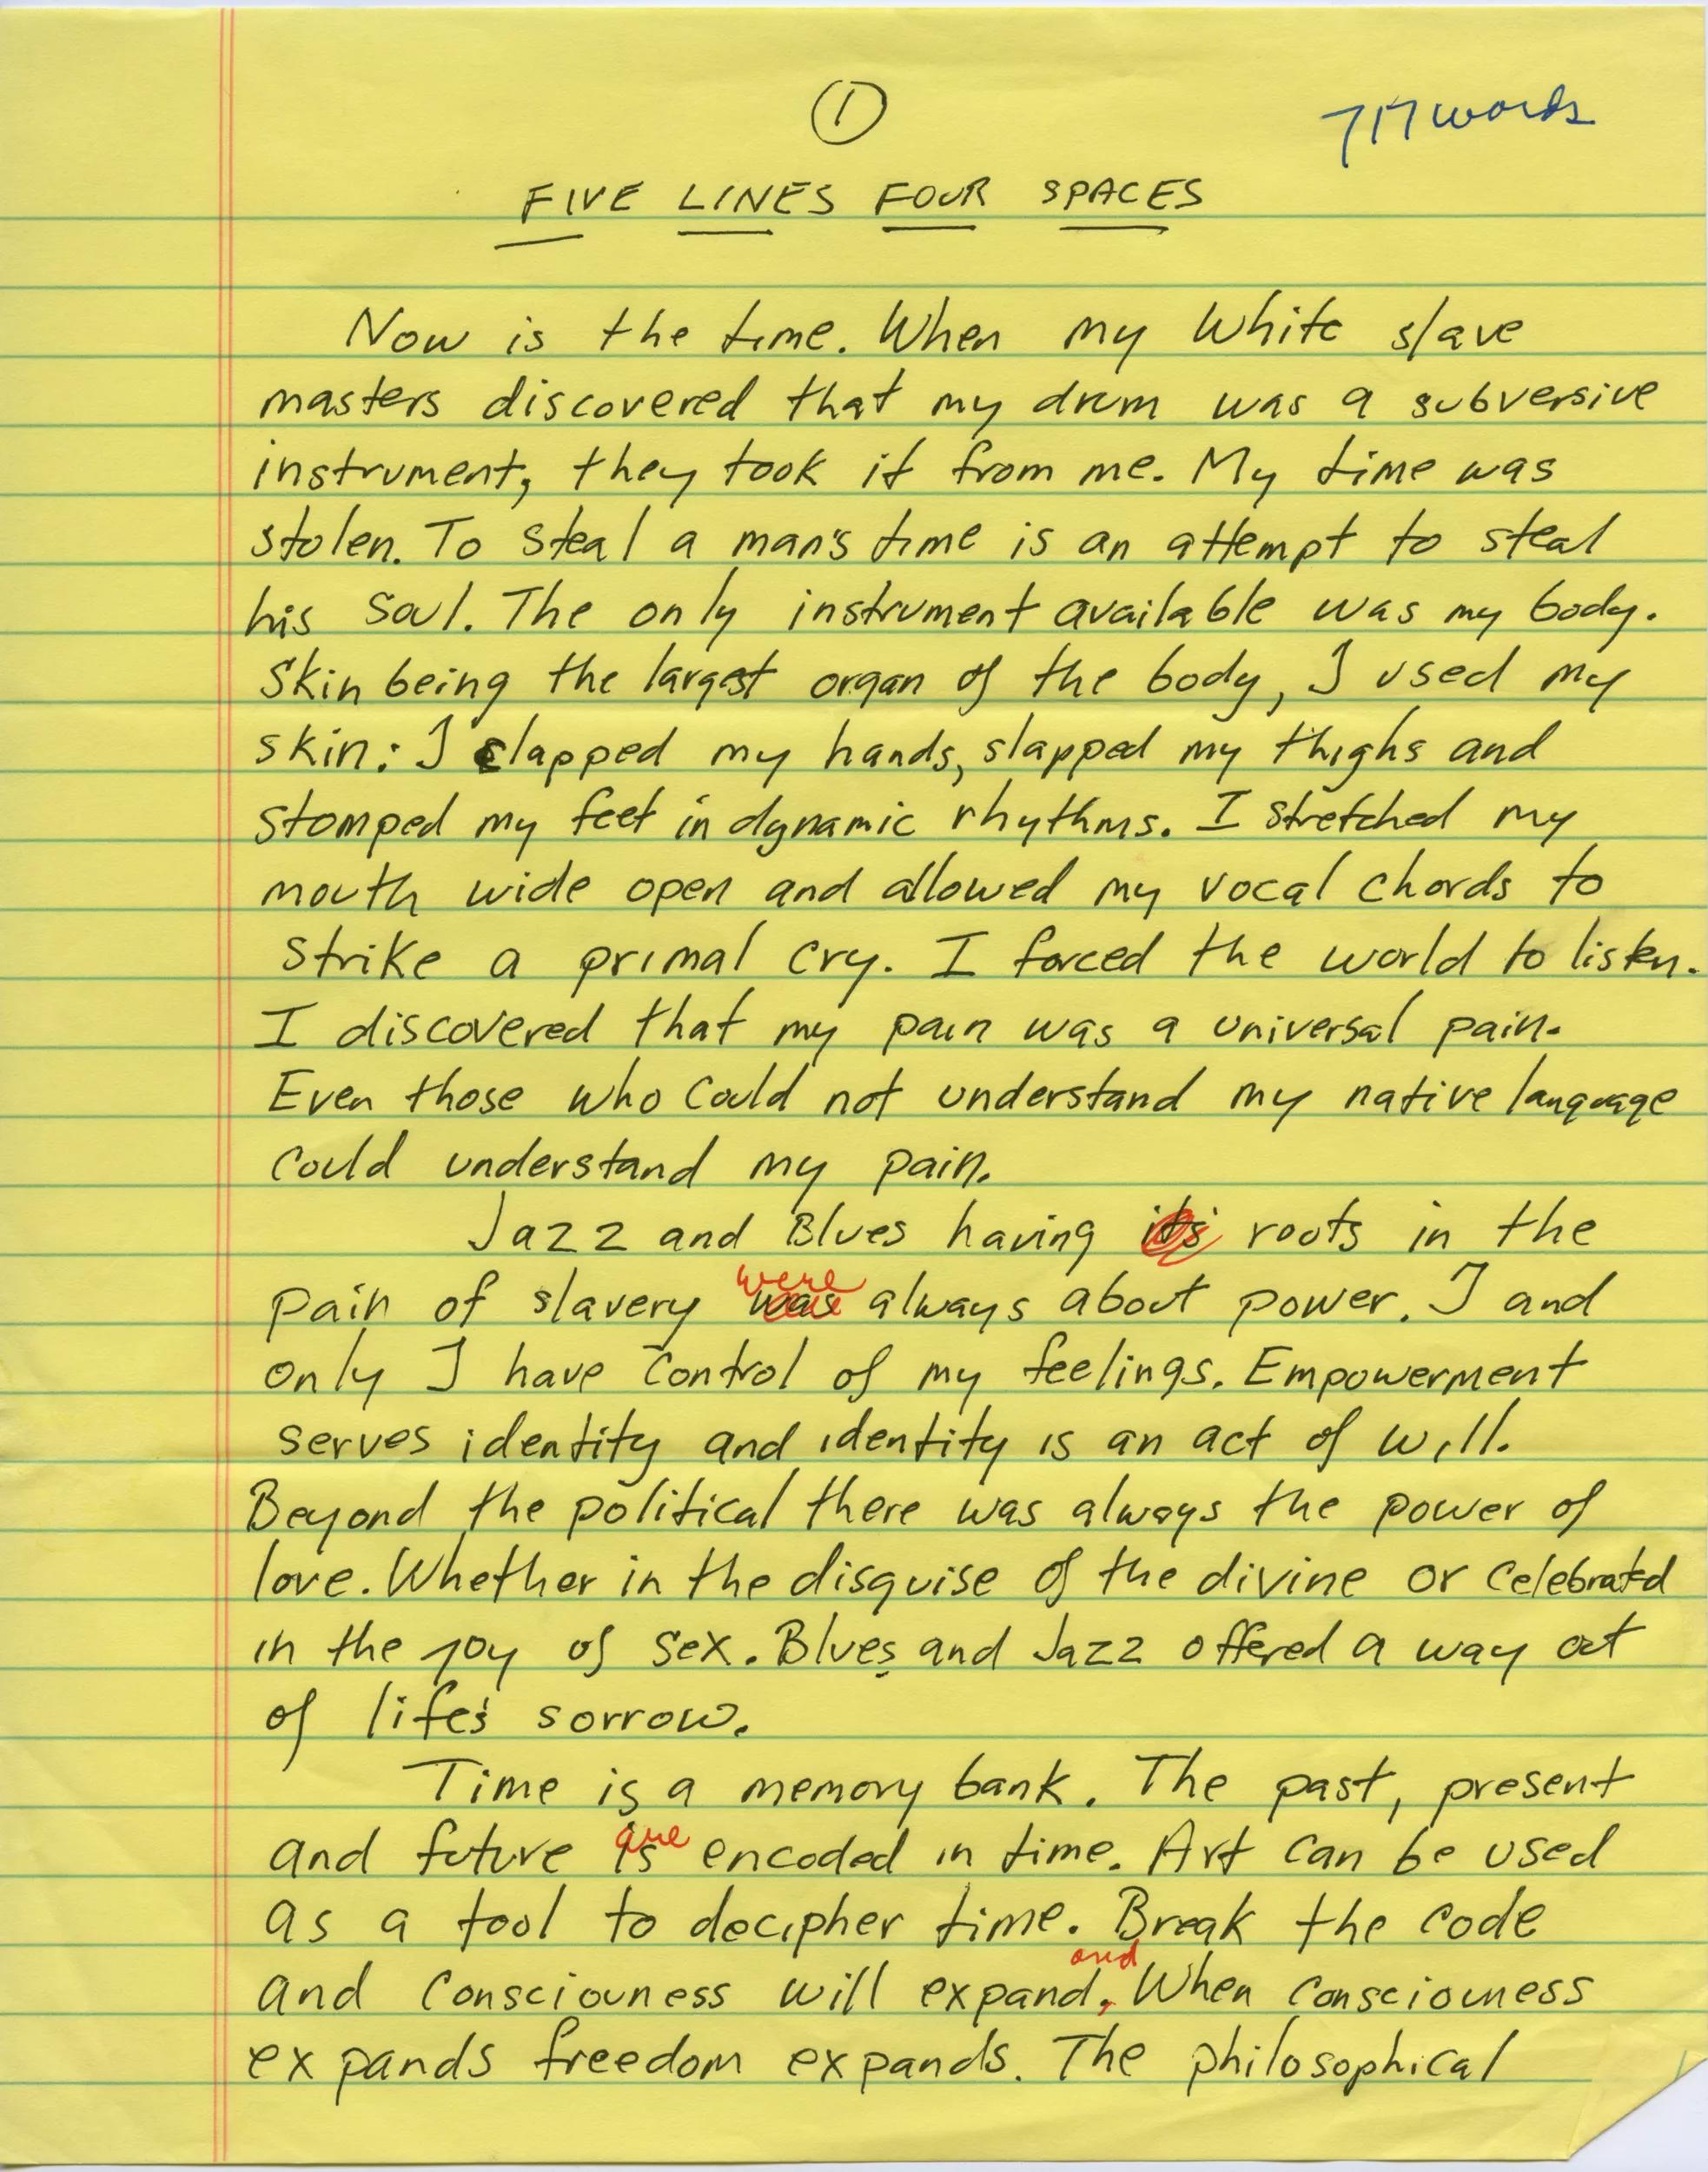 ①
717 words
FIVE LINES FOUR SPACES
Now is the time. When my White slave
masters discovered that my drum was a subversive
instrument, they took it from me. My time was
stolen. To steal a man's time is an attempt to steal
his soul. The only instrument available was my body.
Skin being the largest organ of the body, I used my
skin: I clapped my hands, slapped my thighs and
stomped my feet in dynamic rhythms. I stretched my
mouth wide open and allowed my vocal chords to
strike a primal cry. I forced the world to listen.
I discovered that my pain was a universal pain.
Even those who could not understand my native language
could understand my pain.
Jazz and Blues having its roots in the
were
pain of slavery was always about power. I and
only I have control of my feelings. Empowerment
serves identity and identity is an act of will.
Beyond the political there was always the power of
love. Whether in the disguise of the divine or celebrated
in the joy of sex. Blues and Jazz offered a way out
of life's sorrow.
Time is a memory bank. The past, present
are
and future is encoded in time. Art can be used
as a tool to decipher time. Break the code
and
and Consciouness will expand, When Consciouness
expands freedom expands. The philosophical